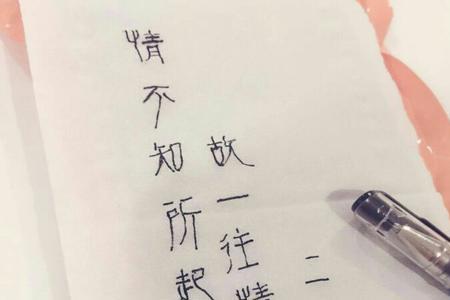 情不知所起
故一往情
二